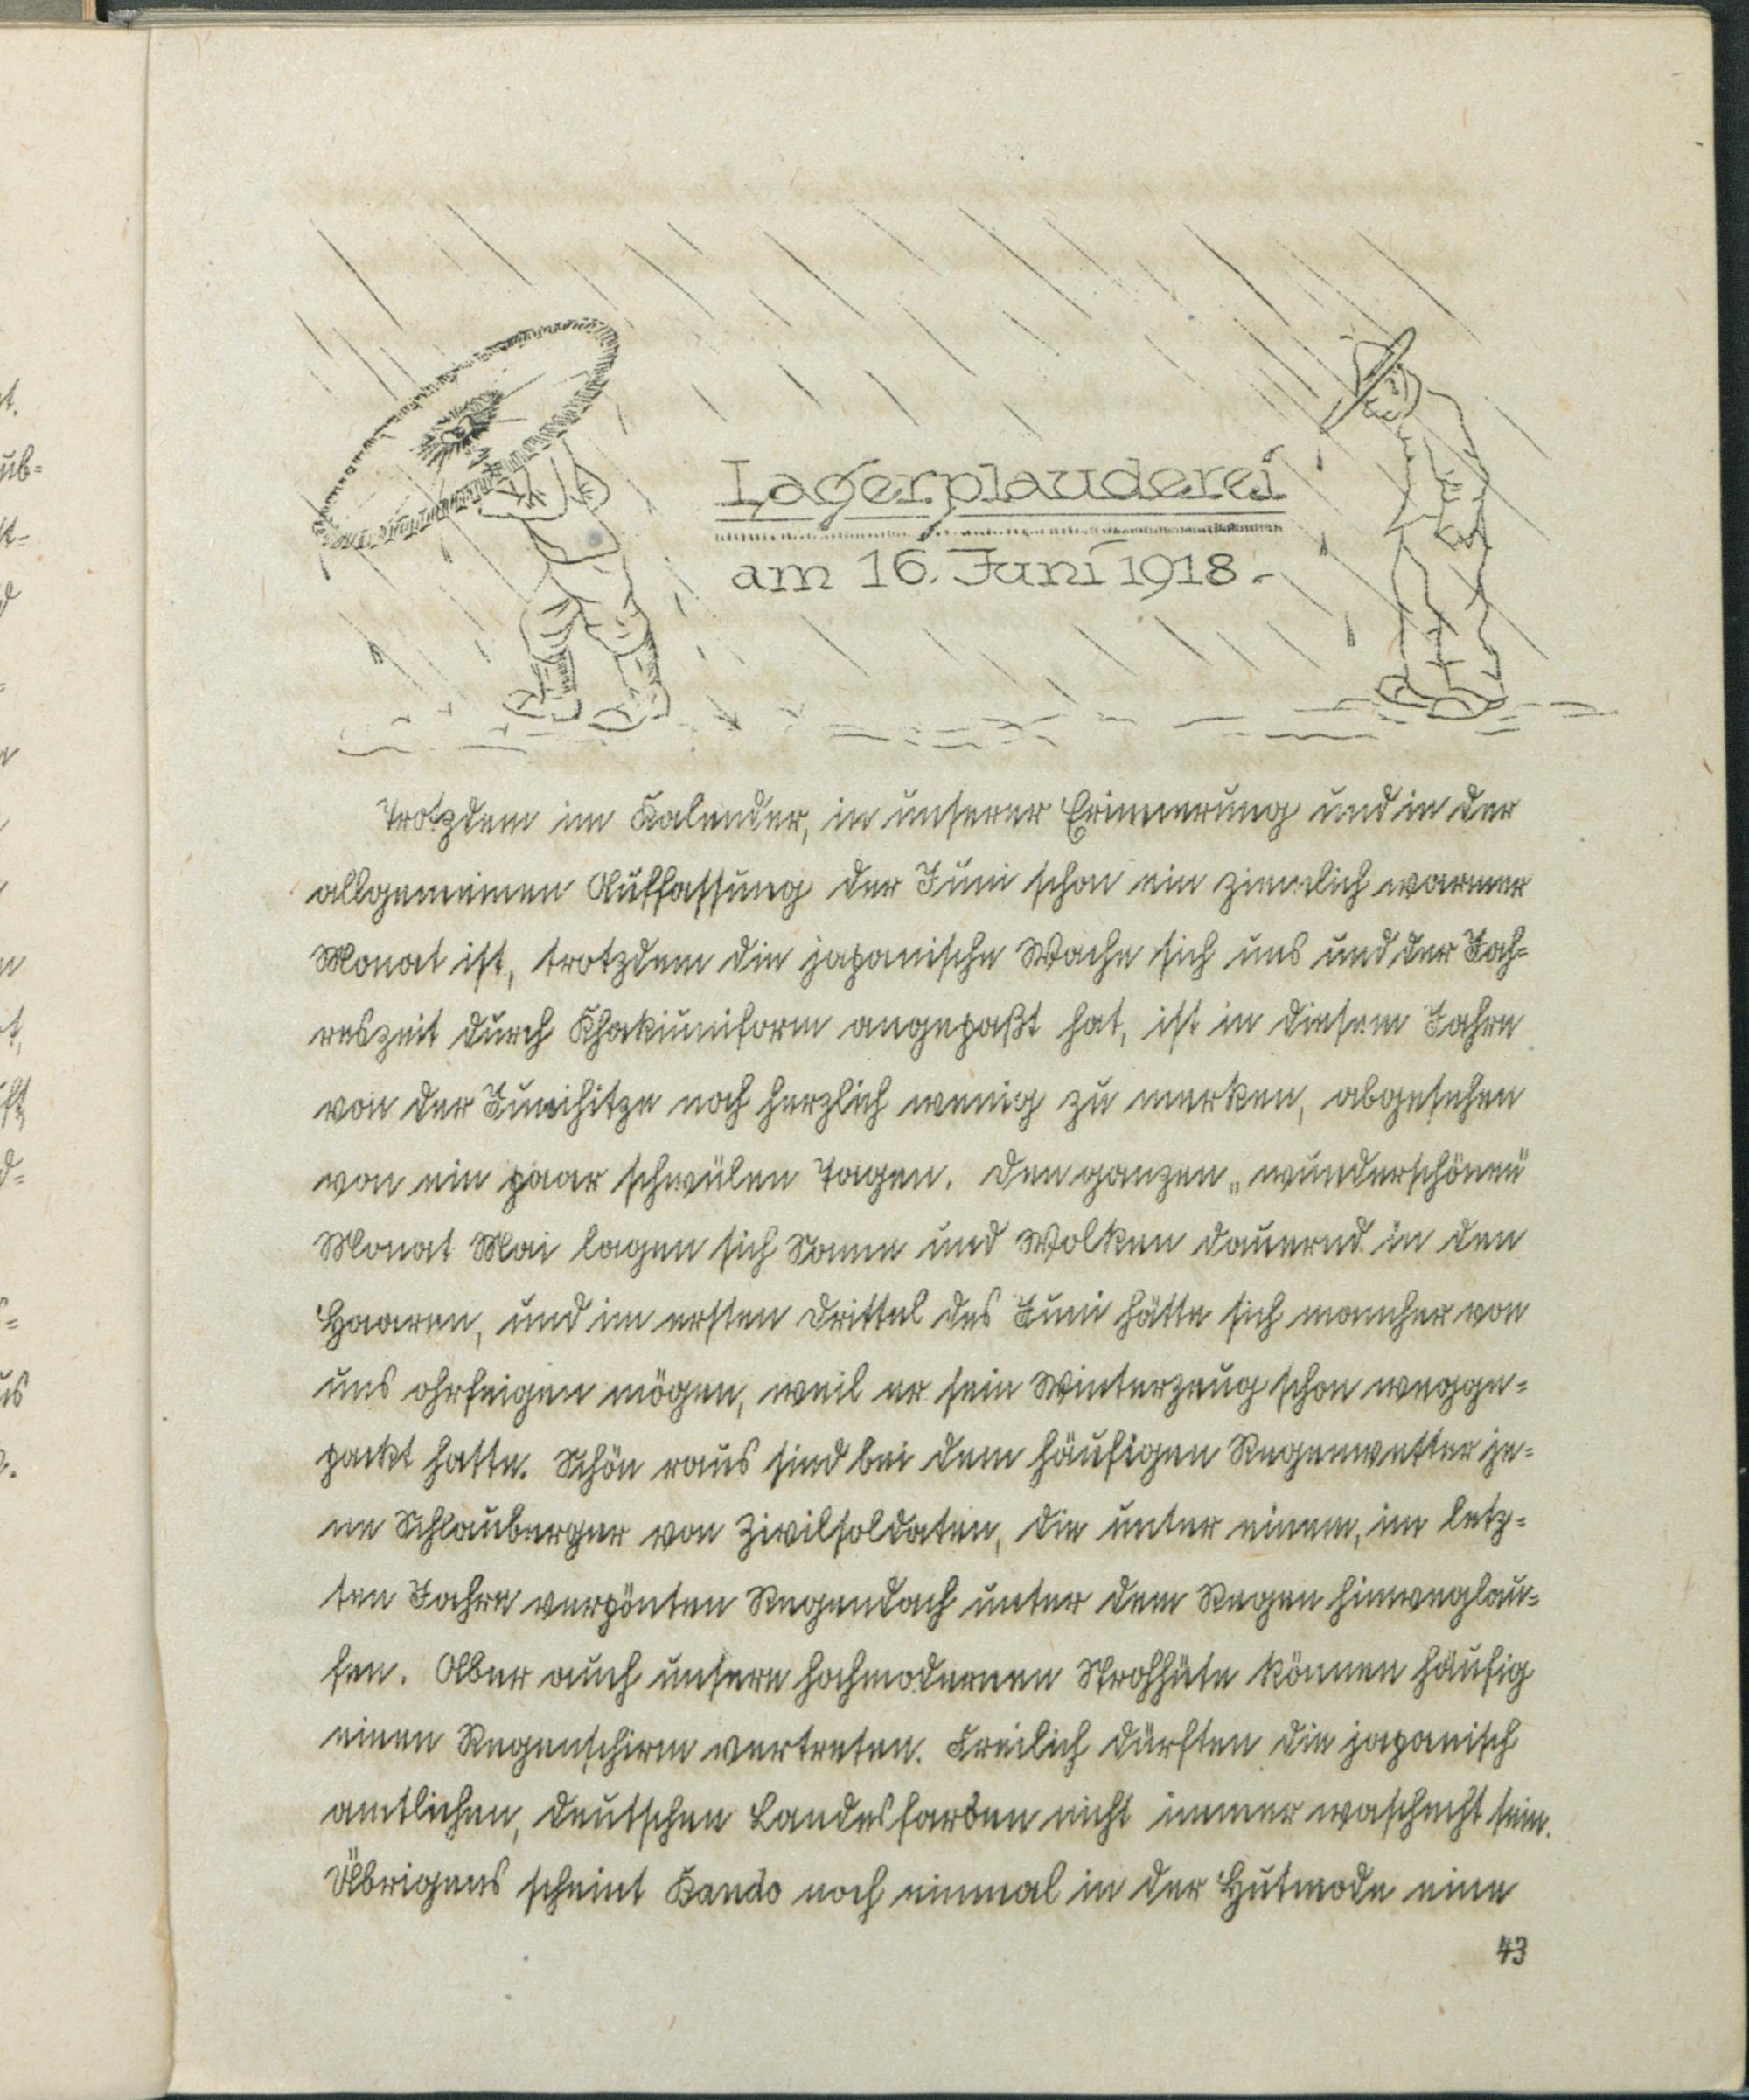 Lagerplauderei
am 16. Juni 1918.-
Trotzdem im Kalender, in unserer Erinnerung und in der
allgemeinen Auffassung der Juni schon ein ziemlich warmer
Monat ist, trotzdem die japanische Wache sich uns und der Jah=
reszeit durch Khakiuniform angepaßt hat, ist in diesem Jahre
von der Junihitze noch herzlich wenig zu merken, abgesehen
von ein paar schwülen Tagen. Den ganzen „wunderschönen"
Monat Mai lagen sich Sonne und Wolken dauernd in den
Haaren, und im ersten Drittel des Juni hätte sich mancher von
uns ohrfeigen mögen, weil er sein Winterzeug schon wegge=
packt hatte. Schön raus sind bei dem häufigen Regenwetter je=
ne Schlauberger von Zivilsoldaten, die unter einem, im letz=
ten Jahre verpönten Regendach unter dem Regen hinweglau=
fen. Aber auch unsere hochmodernen Strohhüte können häufig
einen Regenschirm vertreten. Freilich dürften die japanisch
amtlichen, deutschen Landesfarben nicht immer waschecht sein.
Übrigens scheint Bando noch einmal in der Hutmode eine
43